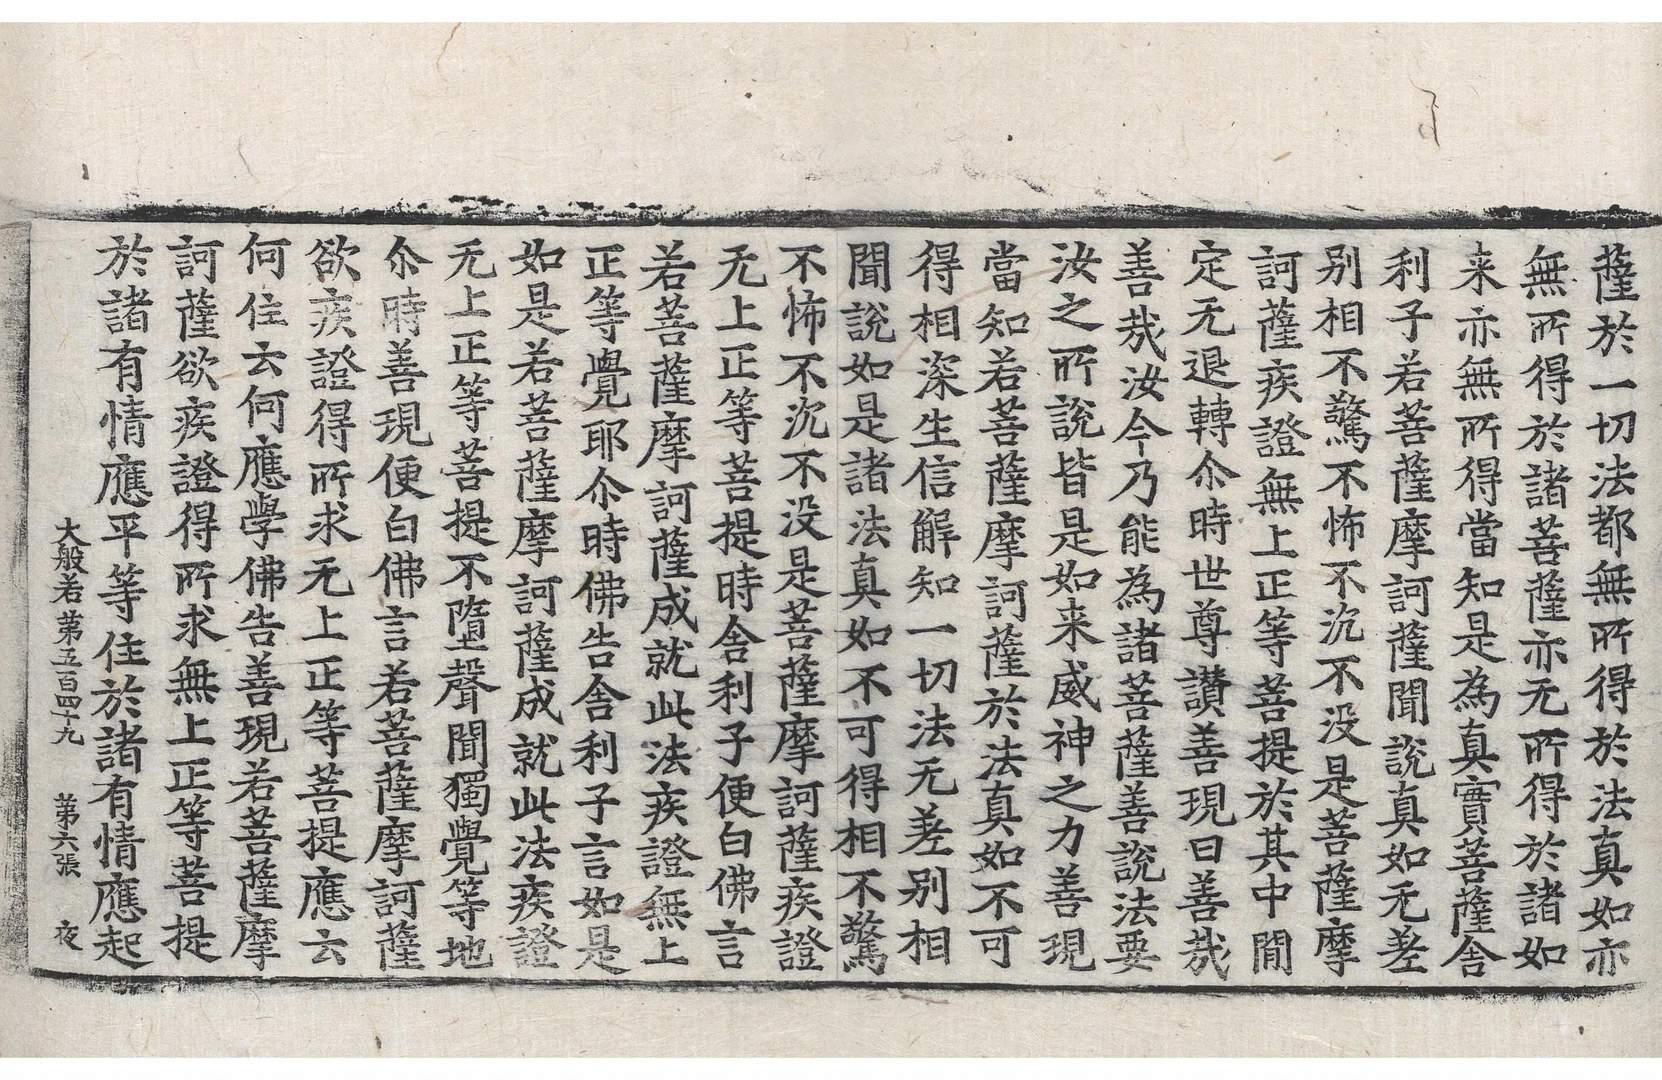 薩於一切法都無所得於法真如亦
無所得於諸菩薩亦无所得於諸如
来亦無所得當知是為真實菩薩舍
利子若菩薩摩訶薩聞說真如无差
别相不驚不怖不沉不没是菩薩摩
訶薩疾證無上正等菩提於其中間
定无退轉尒時世尊讃善現曰善㢤
善㢤汝今乃能為諸菩薩善說法要
汝之所說皆是如来威神之力善現
當知若菩薩摩訶薩於法真如不可
得相深生信解知一切法无差别相
聞說如是諸法真如不可得相不驚
不怖不沉不没是菩薩摩訶薩疾證
无上正等菩提時舍利子便白佛言
若菩薩摩訶薩成就此法疾證無上
正等覺耶尒時佛告舍利子言如是
如是若菩薩摩訶薩成就此法疾證
无上正等菩提不墮聲聞獨覺等地
尒時善現便白佛言若菩薩摩訶薩
欲疾證得所求无上正等菩提應云
何住云何應學佛告善現若菩薩摩
訶薩欲疾證得所求無上正等菩提
於諸有情應平等住於諸有情應起
大般若苐五百四十九 苐六張 夜